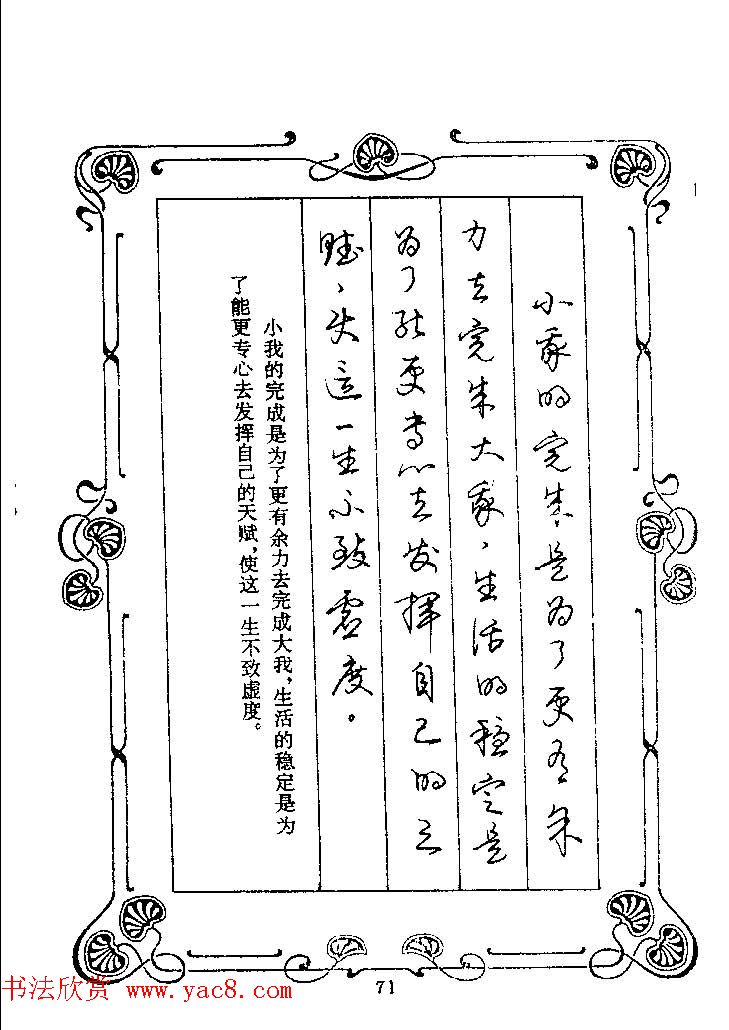 小我的完成是为了更有余
力去完成大我，生活的稳定是
为了能更专心去发挥自己的天
赋，使这一生不致虚度。
小我的完成是为了更有余力去完成大我，生活的稳定是为
了能更专心去发挥自己的天赋，使这一生不致虚度。
71
书法欣赏 www.yac8.com